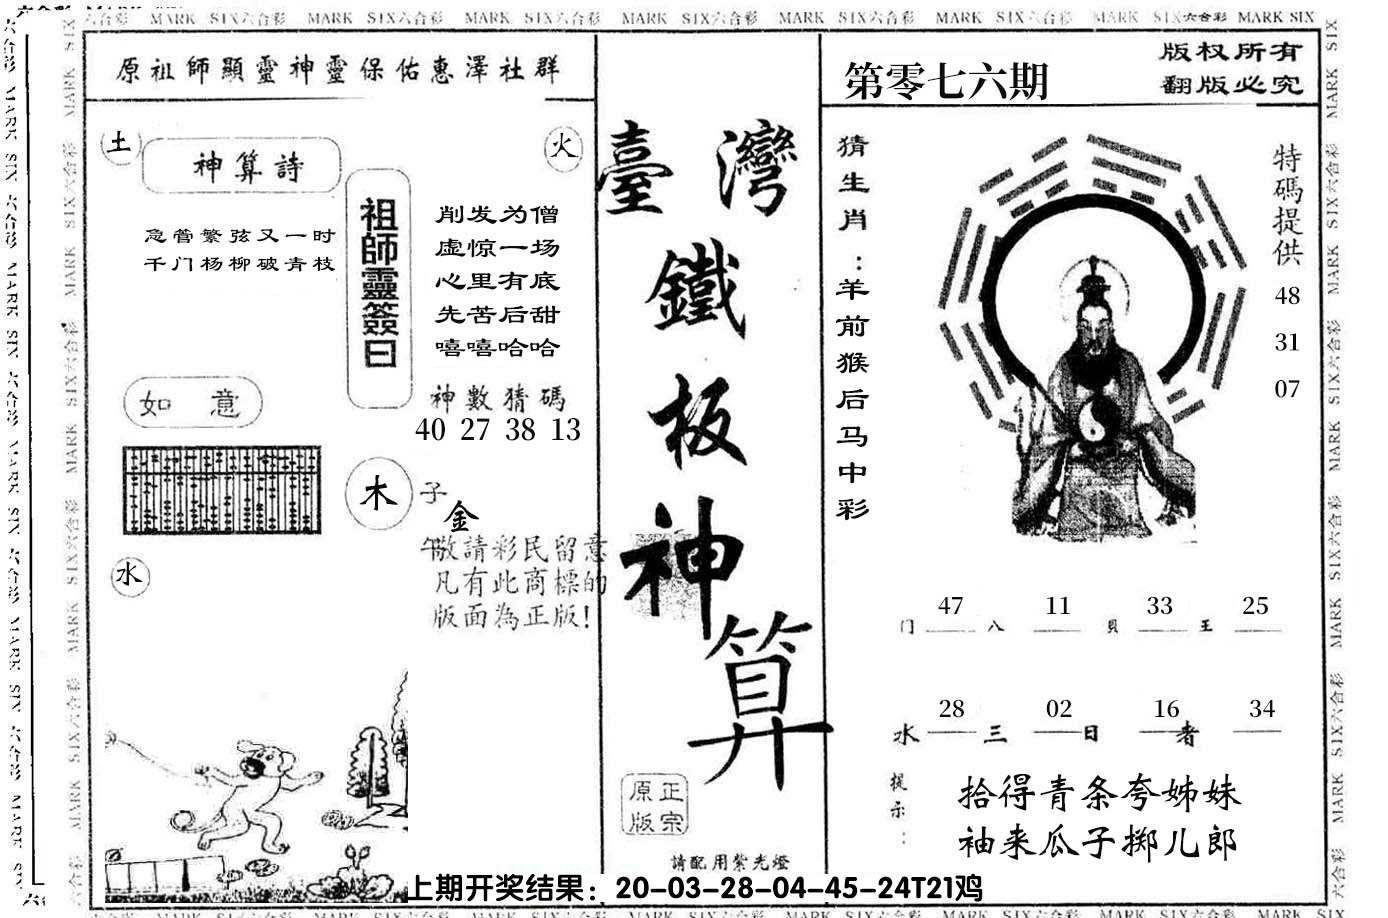 MARK SIX六合彩 MARK SIX六合彩 MARK SIX六合彩 MARK SIX六合彩 MARK SIX六合彩 MARK SIX六合彩 MARK SIX六合彩 MARK SIX
原祖師顯靈神靈保佑惠澤社群
土
神算詩
火
急管繁弦又一时
千门杨柳破青枝
祖師靈簽曰
削发为僧
虚惊一场
心里有底
先苦后甜
嘻嘻哈哈
神數猜碼
40 27 38 13
如意
木
子
金
午
敬請彩民留意
凡有此商標的
版面為正版!
水
臺灣
鐵板神算
正宗
原版
請配用紫光燈
第零七六期
版权所有
翻版必究
猜生肖:羊前猴后马中彩
特碼提供
48
31
07
47 11 33 25
门 八 貝 王
28 02 16 34
水 三 日 者
提示:
拾得青条夸姊妹
袖来瓜子掷儿郎
上期开奖结果：20-03-28-04-45-24T21鸡